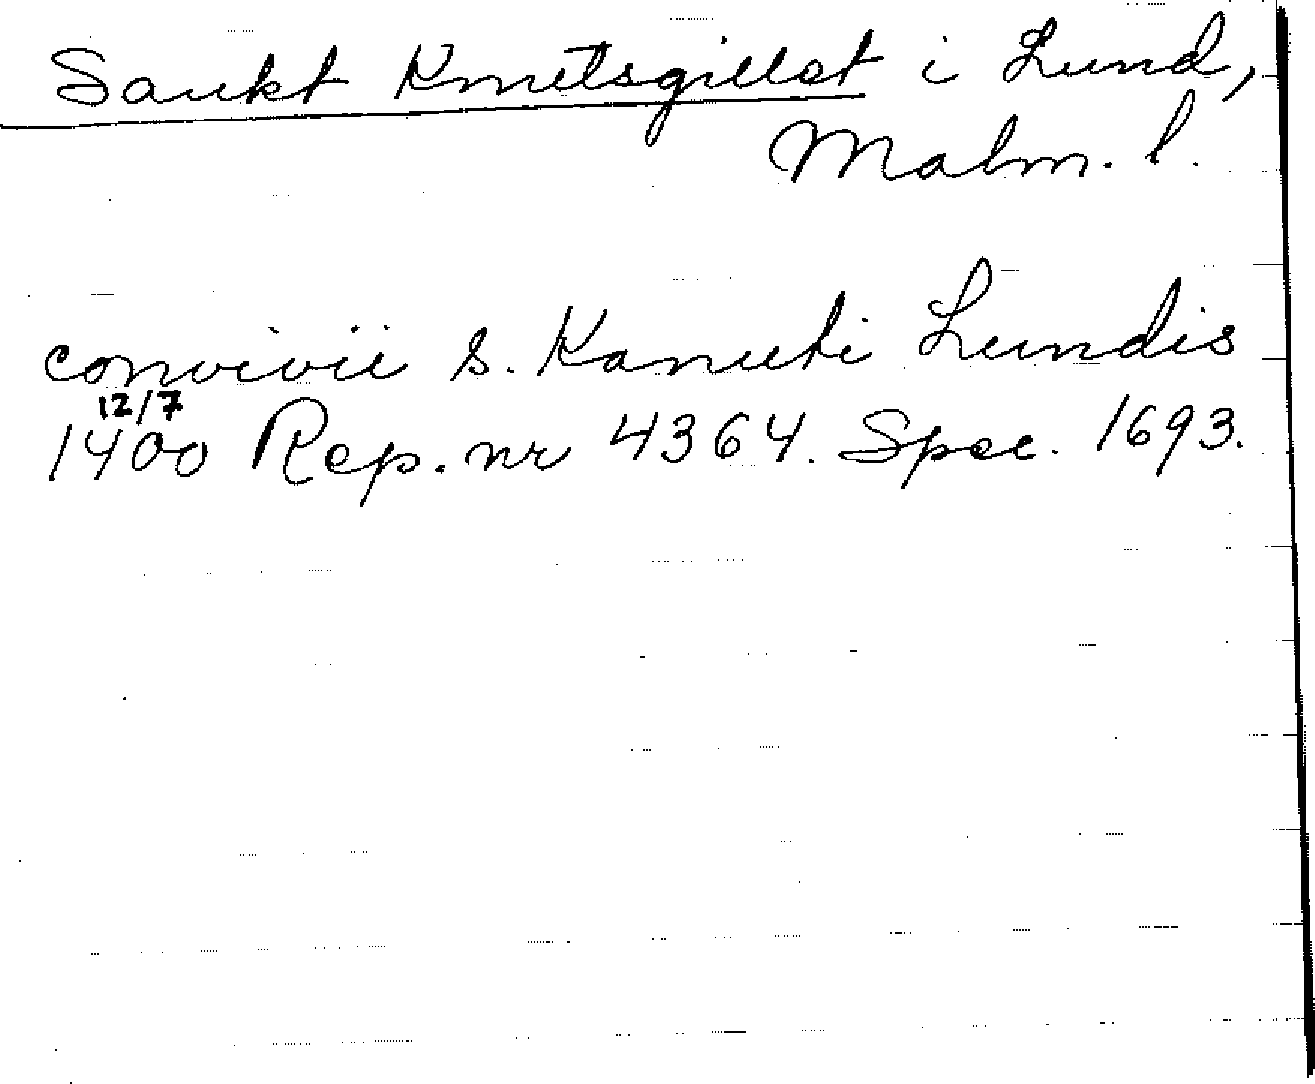 Sankt Knutsgillet i Lund,
Malm. l.
convivii s. Kanuti Lundis
12/7
1400 Rep. nr 4364. Spec. 1693.